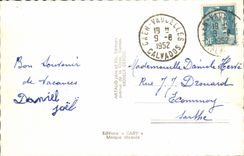 CAEN-VAUCELLES
19 H
9-8
1952
CALVADOS
Bon Souvenir
de Vacances
Daniel
Joël
Mademoiselle Danièle Hervé
Rue J. J. Drouard
Ecommoy
Sarthe
Editions "GABY"
Marque déposée